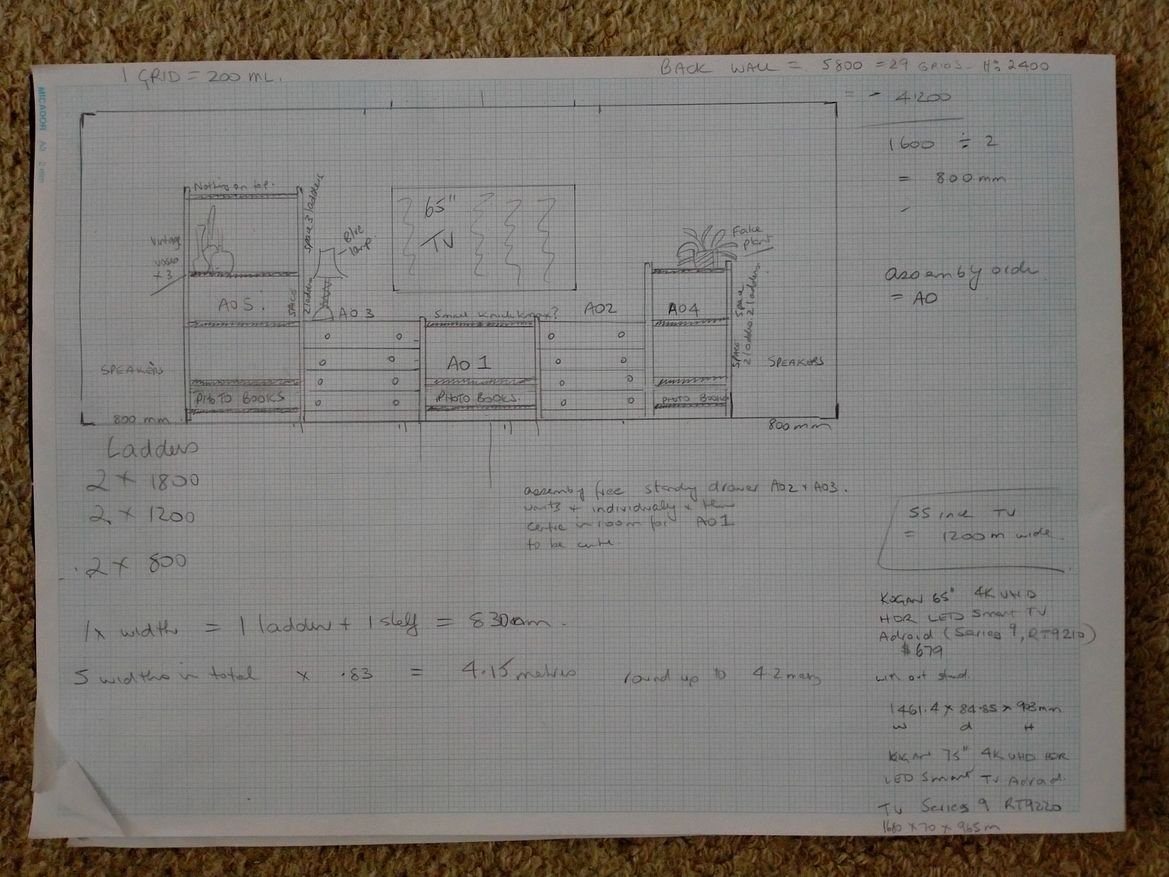 1 GRID = 200 ML.
BACK WALL = 5800 = 29 GRIDS - H= 2400
= - 4200
1600 ÷ 2
= 800mm
MICADOR
Nothing on top.
space 3 ladders
65"
TV
Blue
lamp
Fake
plant
vintage
vases
x 3
assembly order
= AO
AO5.
space
2 ladders
AO3
Small knick knax?
AO2
AO4
space
2 ladders
AO1
space
2 ladders
SPEAKERS
SPEAKERS
PHOTO BOOKS
PHOTO BOOKS
PHOTO BOOKS
800 mm
800mm
Ladders
2 x 1800
2 x 1200
2 x 800
assembly free standy drawer AO2 + AO3.
units + individualy +
centre in room for AO1
to be
55 inch TV
= 1200m wide.
1x width = 1 ladder + 1 shelf = 830mm.
5 widths in total x .83 = 4.15 metres round up to 4.2
KOGAN 65" 4K UHD
HDR LED Smart TV
Adroid (Series 9, RT9210)
$679
with out stand.
1461.4 x 84.85 x
W d H
KOGAN 75" 4K UHD HDR
LED Smart TV Adroid.
TV Series 9 RT9220
1680 x 70 x 965m